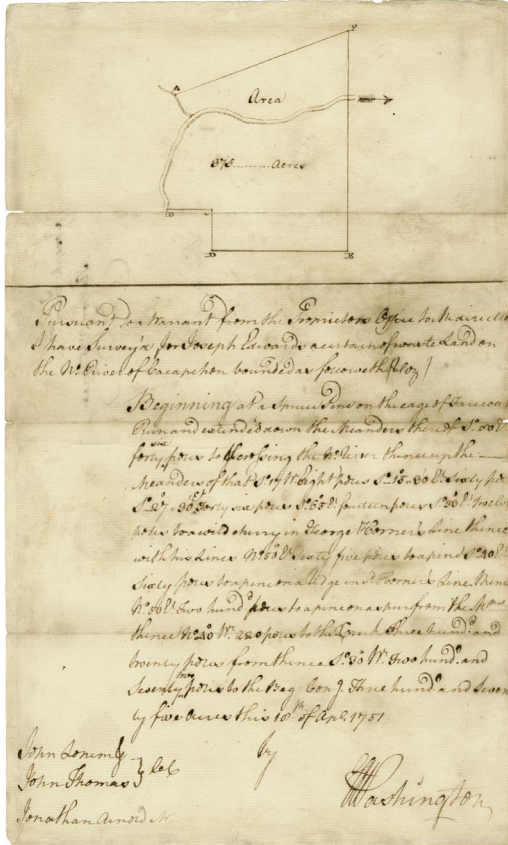 A
F
Area
375 Acres
B
C
D
E
Pursuant to a Warrant from the Proprietors Office to me directed
I have Surveyd for Joseph Edwards a certain of waste Land on
the No. River of Cacapehon bounded as followeth (Viz)
Beginning at a Spruce Pine on the edge of
Run and extended down the Meanders there of So. 50 Wt
forty six poles to crossing the No. River thence up the
Meanders of that So. 17 Wt Eight poles So. 15 30 Et Sixty poles
So. 27 30 Et forty six poles So. 55 Et fourteen poles So. 30 Et Twelve
poles to a wild cherry in George Horner's Line thence
with his Lines No. 50 Et Sixty five poles to a pine So. 40 Et
Sixty poles to a pine on a Ridge in sd. Horner's Line thence
No. 50 Et Two hund'd poles to a pine on a spur from the Mtn
thence No. 40 Wt. 220 poles to the Three hund'd and
twenty poles from thence So. 30 Wt. Two hund'd and
Seventy two poles to the Beg Con g. Three hund'd and Seven
ty five Acres this 10th of Apl. 1751
John Lonem
John Thomas } CC
by
Jonathan Arnold
GWashington